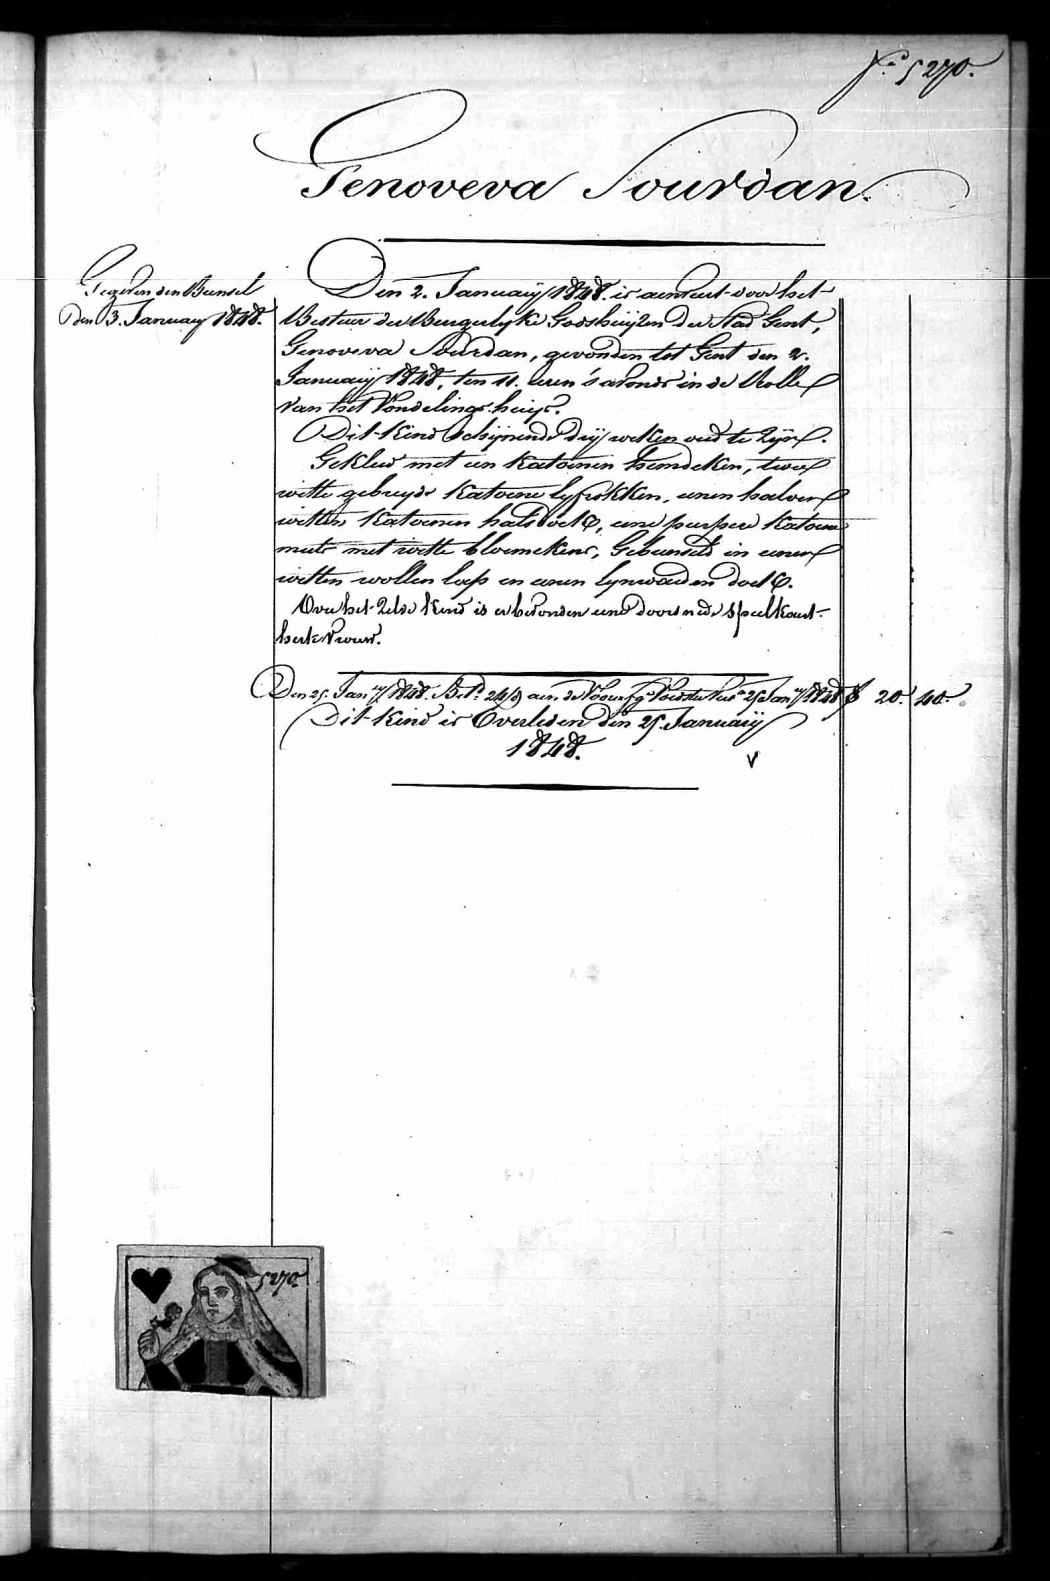 N.º 5270.
Genoveva Sourdan.
Gegeven den Bunsel
Den 3. January 1848.
Den 2. Januarij 1848. is aenveert door het
Bestuer der Burgerlyke Godshuijzen der Stad Gent,
Genoveva Sourdan, gevonden tot Gent den 2.
Januarij 1848, ten 11. uren 's avonds in de Rolle
van het Vondelings-huijs.
Dit Kind schijnende drij weken oud te zijn.
Gekleed met een Katoenen hemdeken, twee
witte gebreyde Katoene lyfrokken, eenen halven
witten Katoenen halsdoek, eene purpere Katoene
muts met witte bloemekens, Gebunseld in eenen
witten wollen lap en eenen lynwaeden doek.
Over het Zelve kind is er bevonden eene doorsnede speelkaert
herte vrouw.
Den 25. Jan.ij 1848. Bet.d aen de 25 Jan.ij 1848 f 20. 40.
Dit Kind is Overleden den 25. Januarij
1848.
V
5270.